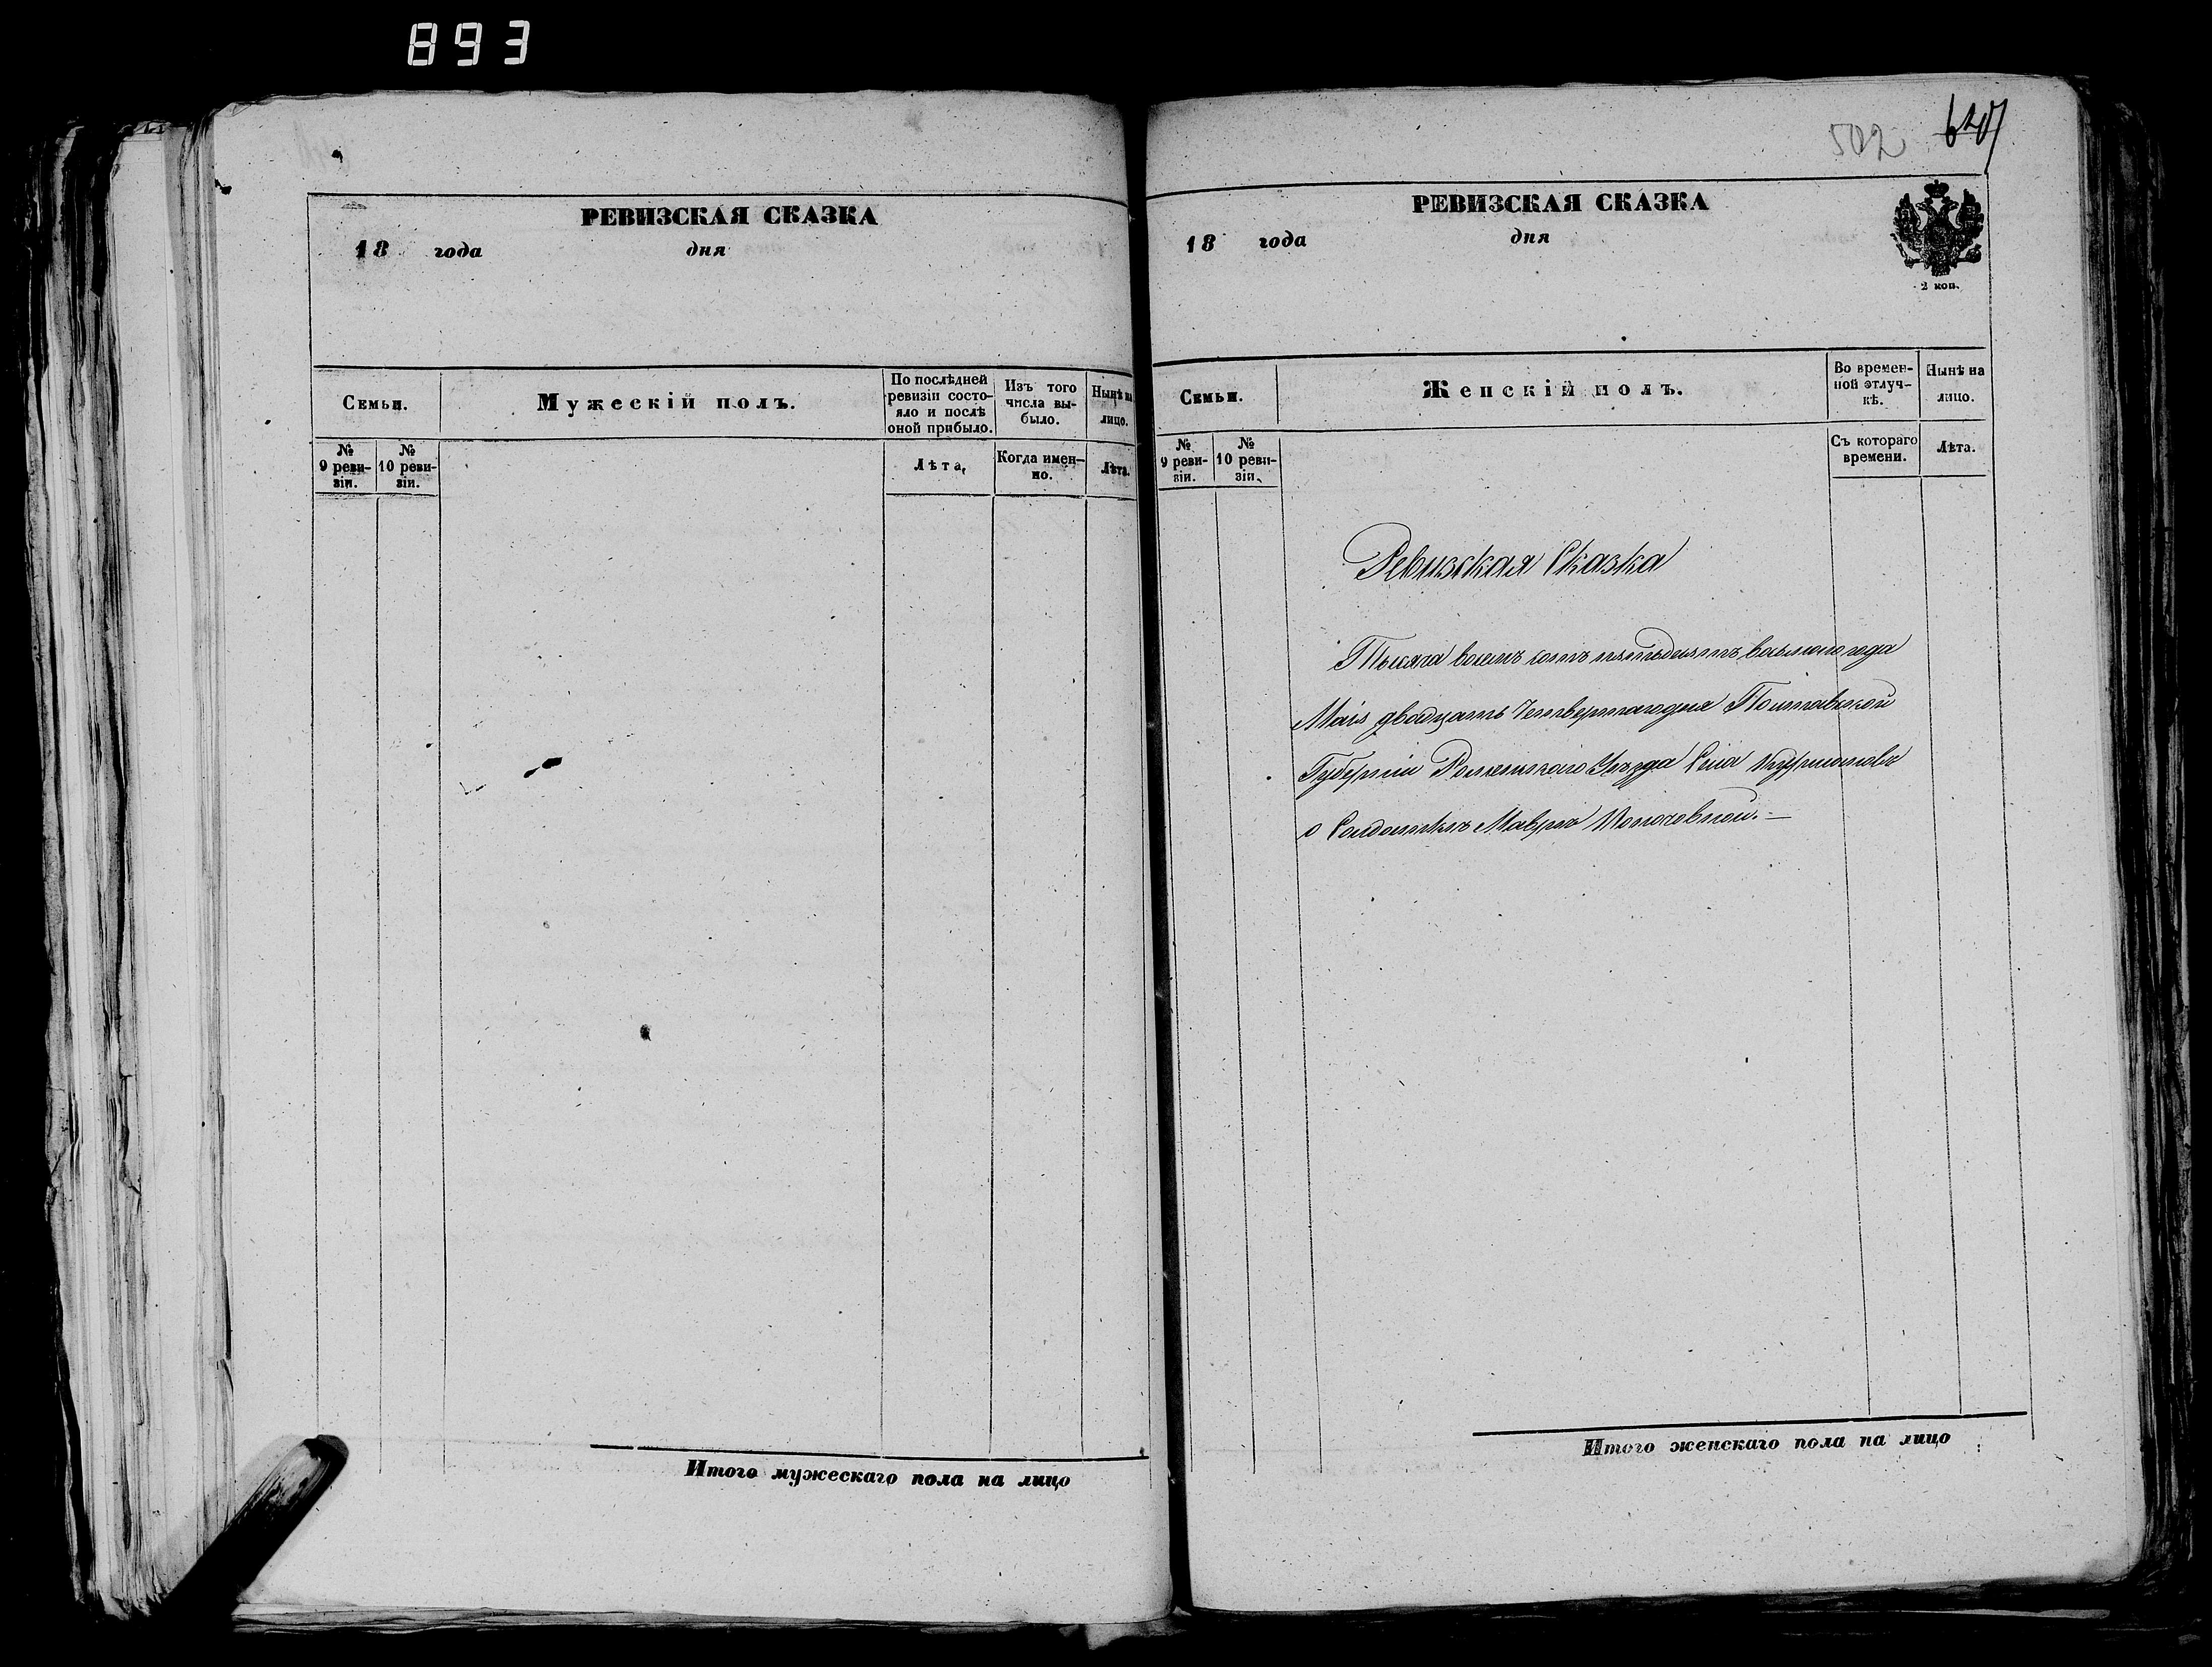 893
РЕВИЗСКАЯ СКАЗКА
18 года дня
Семьи.
Мужескій полъ.
По послѣдней ревизіи состояло и послѣ оной прибыло.
Изъ того числа выбыло.
Нынѣ на лицо.
№ 9 ревизіи.
№ 10 ревизіи.
Лѣта.
Когда именно.
Лѣта.
Итого мужескаго пола на лицо
502
РЕВИЗСКАЯ СКАЗКА
18 года дня
2 коп.
Семьи.
Женскій полъ.
Во временной отлучкѣ.
Нынѣ на лицо.
№ 9 ревизіи.
№ 10 ревизіи.
Съ котораго времени.
Лѣта.
Ревизская Сказка
Тысяча восемъ сотъ пятьдесятъ восьмого года
Маія двадцать Четвертаго дня Полтавской
Губерніи Роменскаго Уѣзда Села
о Солдаткѣ Маврѣ
Итого женскаго пола на лицо